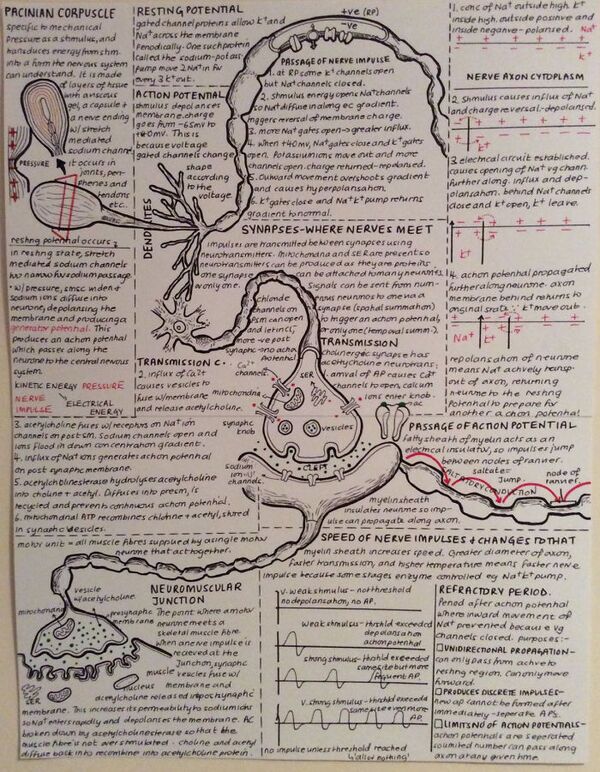 PACINIAN CORPUSCLE
specific to mechanical
pressure as a stimulus, and
transduces energy from stim.
into a form the nervous system
can understand. It is made
of layers of tissue
with a viscous
gel, a capsule +
a nerve ending
w/ stretch
mediated
sodium channel
it occurs in
joints, peri-
phenes and
tendons
etc..
PRESSURE
resting potential occurs ;
in resting state, stretch
mediated sodium channels
too narrow for sodium passage.
• w/ pressure, smsc widen +
sodium ions diffuse into
neurone, depolarising the
membrane and producing a
generator potential. This
produces an action potential
which pass along the
neurone to the central nervous
system.
KINETIC ENERGY PRESSURE
NERVE
IMPULSE
ELECTRICAL
ENERGY
RESTING POTENTIAL
gated channel proteins allow K+ and
Na+ across the membrane
periodically. One such protein
called the sodium-potass
pump move 2 Na+ in for
every 3 K+ out.
ACTION POTENTIAL
stimulus depolarises
membrane. charge
goes from -65mV to
+40mV. This is
because voltage
gated channels change
shape
according
to the
voltage.
DENDRITES
+ve (RP)
-ve
PASSAGE OF NERVE IMPULSE
1. at RP some K+ channels open
but Na+ channels closed.
2. stimulus energy opens Na+ channels
so Na+ diffuse in along ec gradient.
triggers reversal of membrane charge.
3. more Na+ gates open → greater influx.
4. when +40mV, Na+ gates close and K+ gates
open. Potassium ions move out and more
channels open. charge returned - repolarised.
5. Outward movement overshoots gradient
and causes hyperpolarisation.
6. K+ gates close and Na+ K+ pump returns
gradient to normal.
1. conc of Na+ outside high. K+
inside high. outside positive and
inside negative - polarised. Na+
K+
NERVE AXON CYTOPLASM
2. Stimulus causes influx of Na+
and charge reversal - depolarised.
K+
3. electrical circuit established.
causes opening of Na+ vg chan.
further along. influx and dep-
olarisation. behind Na+ channels
close and K+ open, K+ leave.
K+
4. action potential propagated
further along neurone. axon
membrane behind returns to
original state ∴ K+ move out.
Na+
K+
repolarisation of neurone
means Na+ actively transp.
out of axon, returning
neurone to the resting
potential to prepare for
another action potential
SYNAPSES - WHERE NERVES MEET
impulses are transmitted between synapses using
neurotransmitters. Mitochondria and SER are present so
neurotransmitters can be produced as they are proteins
one synapse can be attached to many neurones
or only one. Signals can be sent from num-
erous neurones to one via a
synapse (spatial summation)
to trigger an action potential,
or only one (temporal summ.).
chloride
channels on
PSM can open
and let in Cl-,
more -ve post
synaptic →no action
potential
TRANSMISSION
cholinergic synapse has
acetylcholine neurotrans:
1. arrival of AP causes Ca2+
channels to open, calcium
ions enter knob
TRANSMISSION C..
2. influx of Ca2+
causes vesicles to
fuse w/ membrane
and release acetylcholine.
Ca2+
channels.
mitochondria
SER
AP
synaptic
knob
vesicles
CLEFT
sodium
ion
channels.
3. acetylcholine fuses w/ receptors on Na+ ion
channels on post sm. Sodium channels open and
ions flood in down concentration gradient.
4. influx of Na+ ions generates action potential
on post synaptic membrane.
5. acetylcholinesterase hydrolyses acetylcholine
into choline + acetyl. Diffuses into presm, is
recycled and prevents continuous action potential.
6. mitochondrial ATP recombines choline + acetyl, stored
in synaptic vesicles.
PASSAGE OF ACTION POTENTIAL
fatty sheath of myelin acts as an
electrical insulator, so impulses jump
between nodes of ranvier.
saltate =
Jump.
node of
ranvier
SALTATORY CONDUCTION
myelin sheath
insulates neurone so imp-
ulse can propagate along axon.
motor unit = all muscle fibres supplied by a single motor
neurone that act together.
SPEED OF NERVE IMPULSES + CHANGES TO THAT
myelin sheath increases speed. Greater diameter of axon,
faster transmission, and higher temperature means faster nerve
impulse because some stages enzyme controlled eg Na+K+ pump.
NEUROMUSCULAR
JUNCTION
vesicle
w acetylcholine
mitochondria
presynaptic
membrane
The point where a motor
neurone meets a
skeletal muscle fibre.
when one impulse is
received at the
junction, synaptic
vesicles fuse w/
membrane and
muscle
nucleus
SER
acetylcholine released into postsynaptic
membrane. This increases its permeability to sodium ions
so Na+ enters rapidly and depolarises the membrane. AC
broken down by acetylcholinesterase so that the
muscle fibre is not over stimulated. choline and acetyl
diffuse back into recombine into acetylcholine protein.
v. weak stimulus - no threshold
no depolarisation, no AP.
weak stimulus - threshld exceeded
depolarisation
action potential
strong stimulus - thrshld exceeded
same size but more
frequent AP.
V. strong stimulus - thrshld exceeded
same size even more
AP.
no impulse unless threshold reached
↳ all or nothing!
REFRACTORY PERIOD.
Period after action potential
where inward movement of
Na+ prevented because vg
channels closed. purposes:-
UNIDIRECTIONAL PROPAGATION -
can only pass from active to
resting region. Can only move
forward.
PRODUCES DISCRETE IMPULSES -
new ap cannot be formed after
immediately - seperate APs.
LIMITS NO OF ACTION POTENTIALS -
action potentials are seperated
so limited number can pass along
axon at any given time.